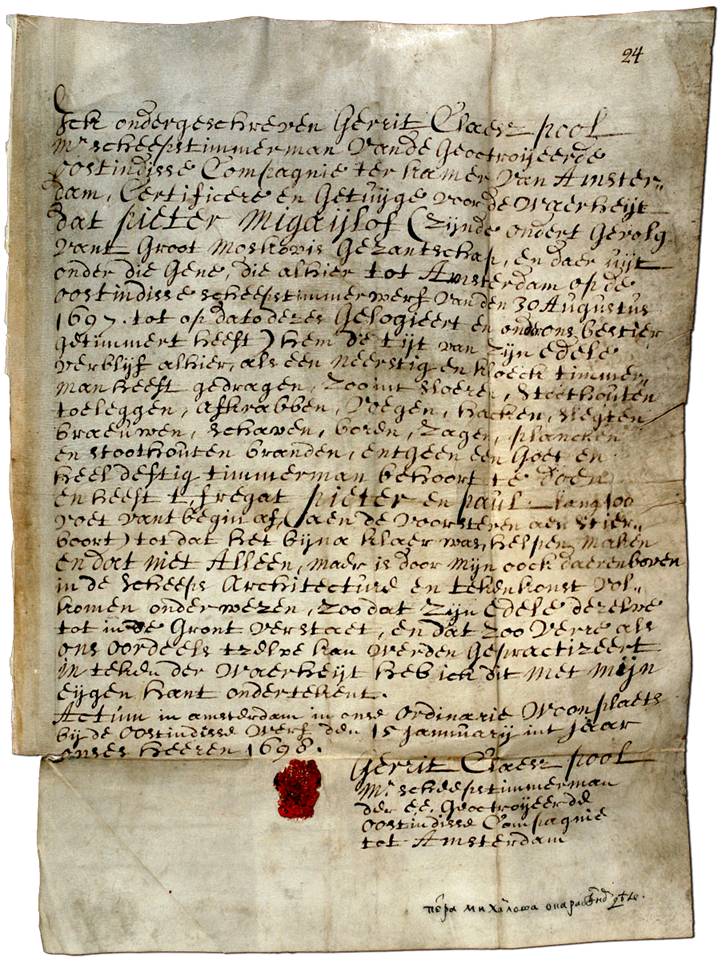 24
Ick ondergeschreven Gerrit Claesz pool
Mr scheepstimmerman vande Geoctroijeerde
oostindisse Compagnie ter kamer van Amster-
dam, Certificere en Getuijge voor de Waerheijt
dat pieter Migaijlof (zijnde ondert Gevolg
vant Groot Moskovis Gezantschap, en daer uijt
onder die Gene, die alhier tot Amsterdam op de
oostindisse scheepstimmerwerf vanden 30 Augustus
1697. tot op dato dezes Gelogieert en onder ons bestier
getimmert heeft) hem de tijt van zijn edele
verblijf alhier, als een neerstig en kloeck timmer-
man heeft gedragen, zoo int vloeren, stoothouten
toeleggen, afkrabben, voegen, hacken, slegten
braeuwen, schaven, boren, zagen, plancken
en stoothouten branden, entgeen een Goet en
heel deftig timmerman behoort te doen
en heeft t, fregat pieter en paul lang 100
voet vant begin af, (aen de voorsteven aen stier-
boort) tot dat het bijna klaer was, helpen maken
en dat niet Alleen, maer is door mijn oock daerenboven
in de scheeps Architecture en tekenkonst vol-
komen onderwezen, zoo dat zijn edele dezelve
tot in de Gront verstaet, en dat zoo verre als
ons oordeels tzelve kan werden Gepractizeert
in teken der Waerheijt heb ick dit met mijn
eijgen hant ondertekent.
Actum in amsterdam in onse ordinarie Woonplaets
bij de oostindisse Werf den 15 januarij int jaer
onses heeren 1698.
Gerrit Claesz pool
Mr scheepstimmerman
der e.e. Geoctroijeerde
oostindisse Compagnie
tot Amsterdam
пера михалова